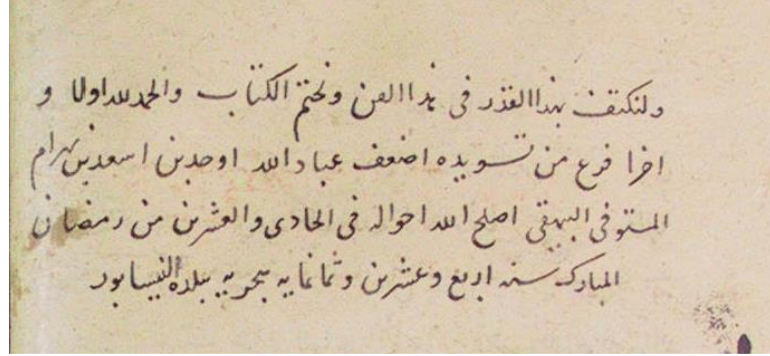 ولنكتف بهذا القدر فى هذا الفن ونختم الكتاب والحمد لله اولا و
اخرا فرغ من تسويده اضعف عباد الله اوحد بن اسعد بن بهرام
المستوفى البيهقى اصلح الله احواله فى الحادى والعشرين من رمضان
المبارك سنه اربع وعشرين وثمانمايه هجريه ببلده النيسابور